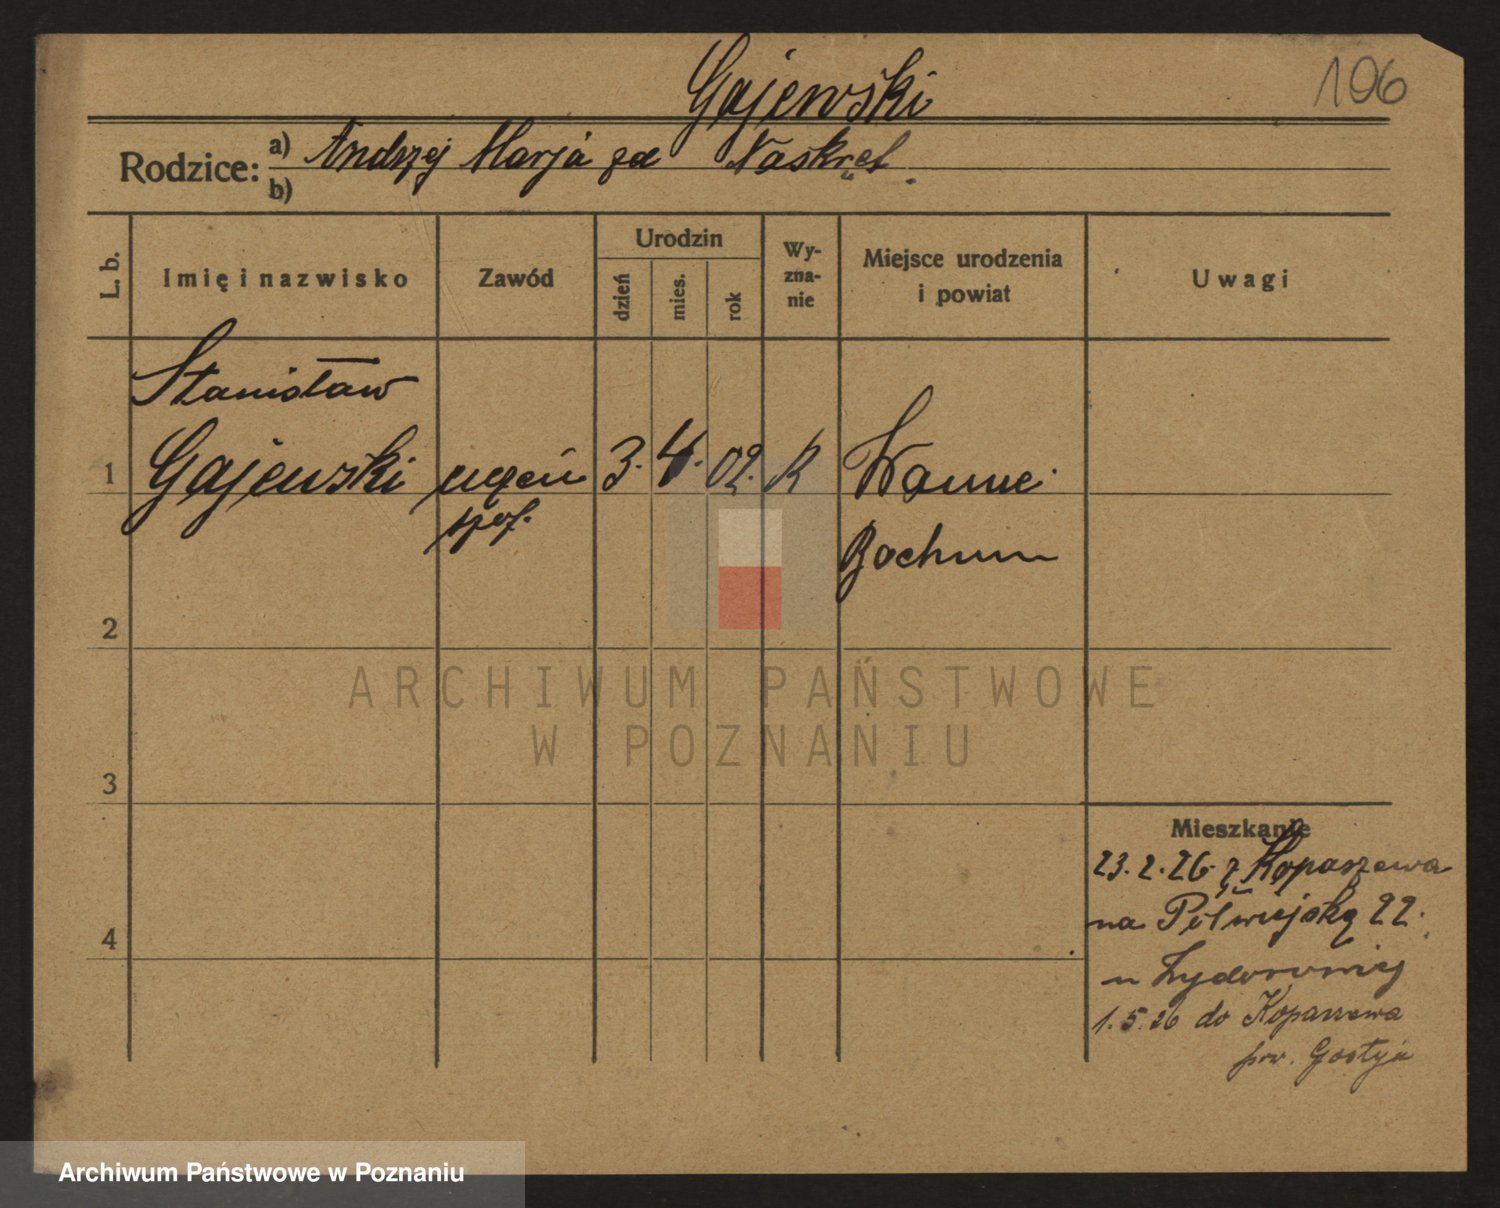 Gajewski
106
Rodzice: a) Andrzej Marja zd Naskręt
b)
L. b.
Imię i nazwisko
Zawód
Urodzin
dzień
mies.
rok
Wy-
zna-
nie
Miejsce urodzenia
i powiat
Uwagi
Stanisław
1 Gajewski uczeń 3. 4. 02. R Wanne
Bochum
2
3
4
Mieszkanie
23.2.26. z Kopaszewa
na Półwiejską 22.
u
1.5.26 do Kopaszewa
pow. Gostyń
ARCHIWUM PAŃSTWOWE
W POZNANIU
Archiwum Państwowe w Poznaniu